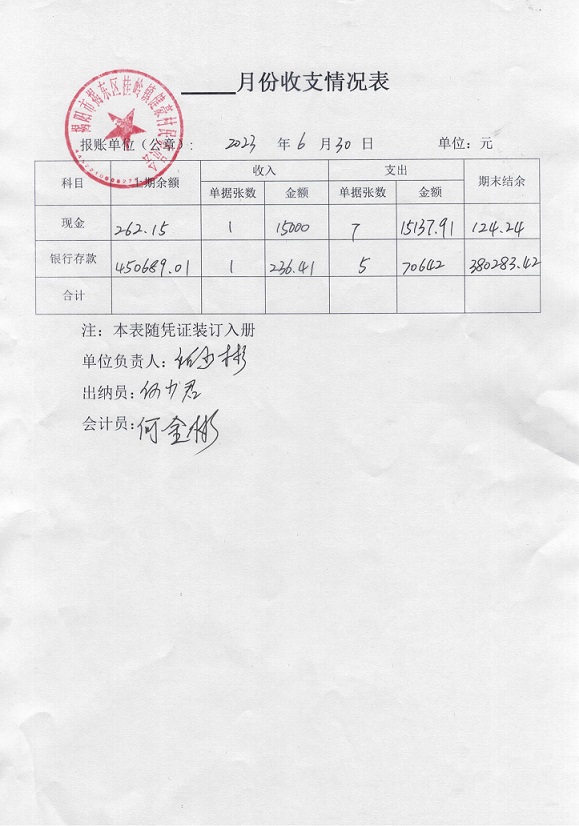 ______月份收支情况表
揭阳市揭东区桂岭镇建豪村民委员会
报账单位（公章）: 2023 年 6 月 30 日 单位：元
科目 上期余额 收入 支出 期末结余
单据张数 金额 单据张数 金额
现金 262.15 1 15000 7 15137.91 124.24
银行存款 450689.01 1 236.41 5 70642 380283.42
合计
注：本表随凭证装订入册
单位负责人:
出纳员: 何少君
会计员: 何金彬